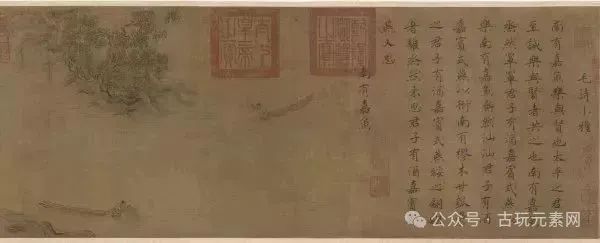 毛詩小雅
南有嘉魚樂與賢也太平之君
至誠樂與賢者共之也南有嘉
烝然罩罩君子有酒嘉賓式燕
樂南有嘉魚烝然汕汕君子有
嘉賓式燕以衎南有樛木甘瓠
之君子有酒嘉賓式燕綏之翩
者鵻烝然來思君子有酒嘉賓
燕又思
南有嘉魚
公众号·古玩元素网